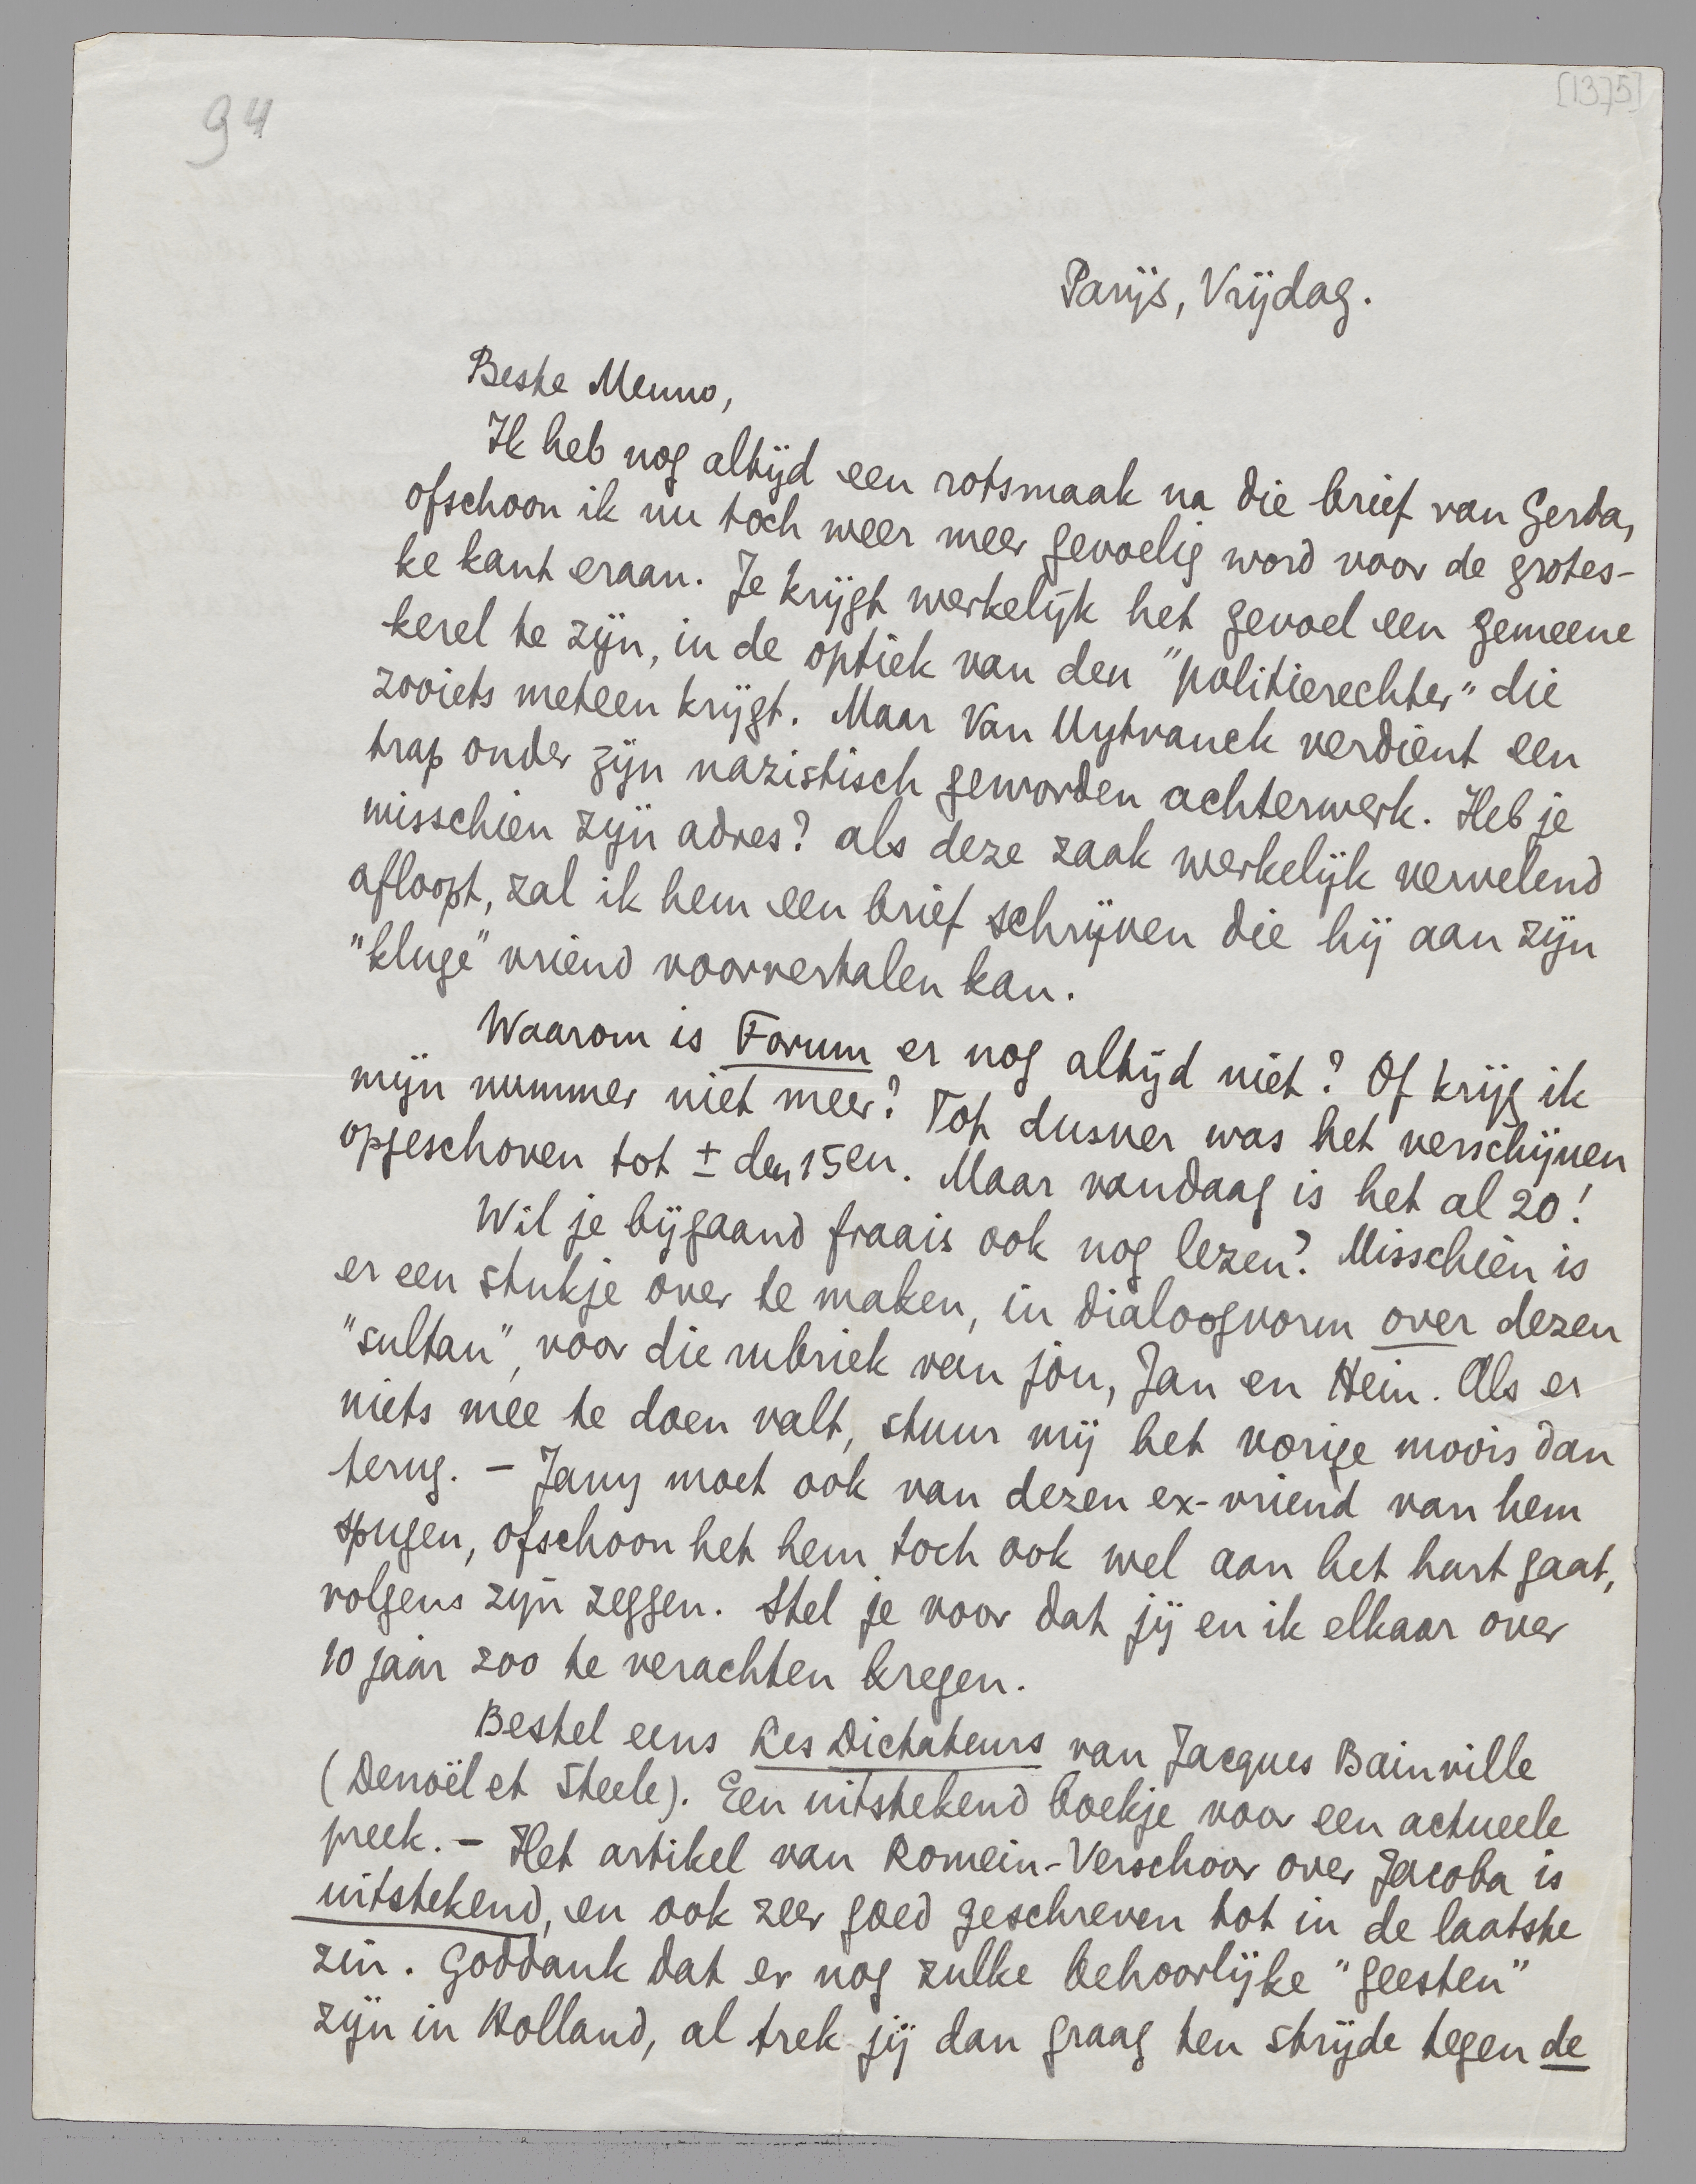 94
[1375]
Parijs, Vrijdag.
Beste Menno,
Ik heb nog altijd een rotsmaak na die brief van Gerda,
ofschoon ik nu toch weer meer gevoelig word voor de grotes-
ke kant eraan. Je krijgt werkelijk het gevoel een gemeene
kerel te zijn, in de optiek van den "politierechter" die
zooiets meteen krijgt. Maar Van Uytvanck verdient een
trap onder zijn nazistisch geworden achterwerk. Heb je
misschien zijn adres? als deze zaak werkelijk vervelend
afloopt, zal ik hem een brief schrijven die hij aan zijn
"kluge" vriend voorvertalen kan.
Waarom is Forum er nog altijd niet? Of krijg ik
mijn nummer niet meer? Tot dusver was het verschijnen
opgeschoven tot ± den 15en. Maar vandaag is het al 20!
Wil je bijgaand fraais ook nog lezen? Misschien is
er een stukje over te maken, in dialoogvorm over dezen
"sultan", voor die rubriek van jou, Jan en Hein. Als er
niets mee te doen valt, stuur mij het vorige moois dan
terug. - Jany moet ook van dezen ex-vriend van hem
spugen, ofschoon het hem toch ook wel aan het hart gaat,
volgens zijn zeggen. Stel je voor dat jij en ik elkaar over
10 jaar zoo te verachten kregen.
Bestel eens Les Dictateurs van Jacques Bainville
(Denoël et Steele). Een uitstekend boekje voor een actueele
preek. - Het artikel van Romein-Verschoor over Jacoba is
uitstekend, en ook zeer goed geschreven tot in de laatste
zin. Goddank dat er nog zulke behoorlijke "geesten"
zijn in Holland, al trek jij dan graag ten strijde tegen de